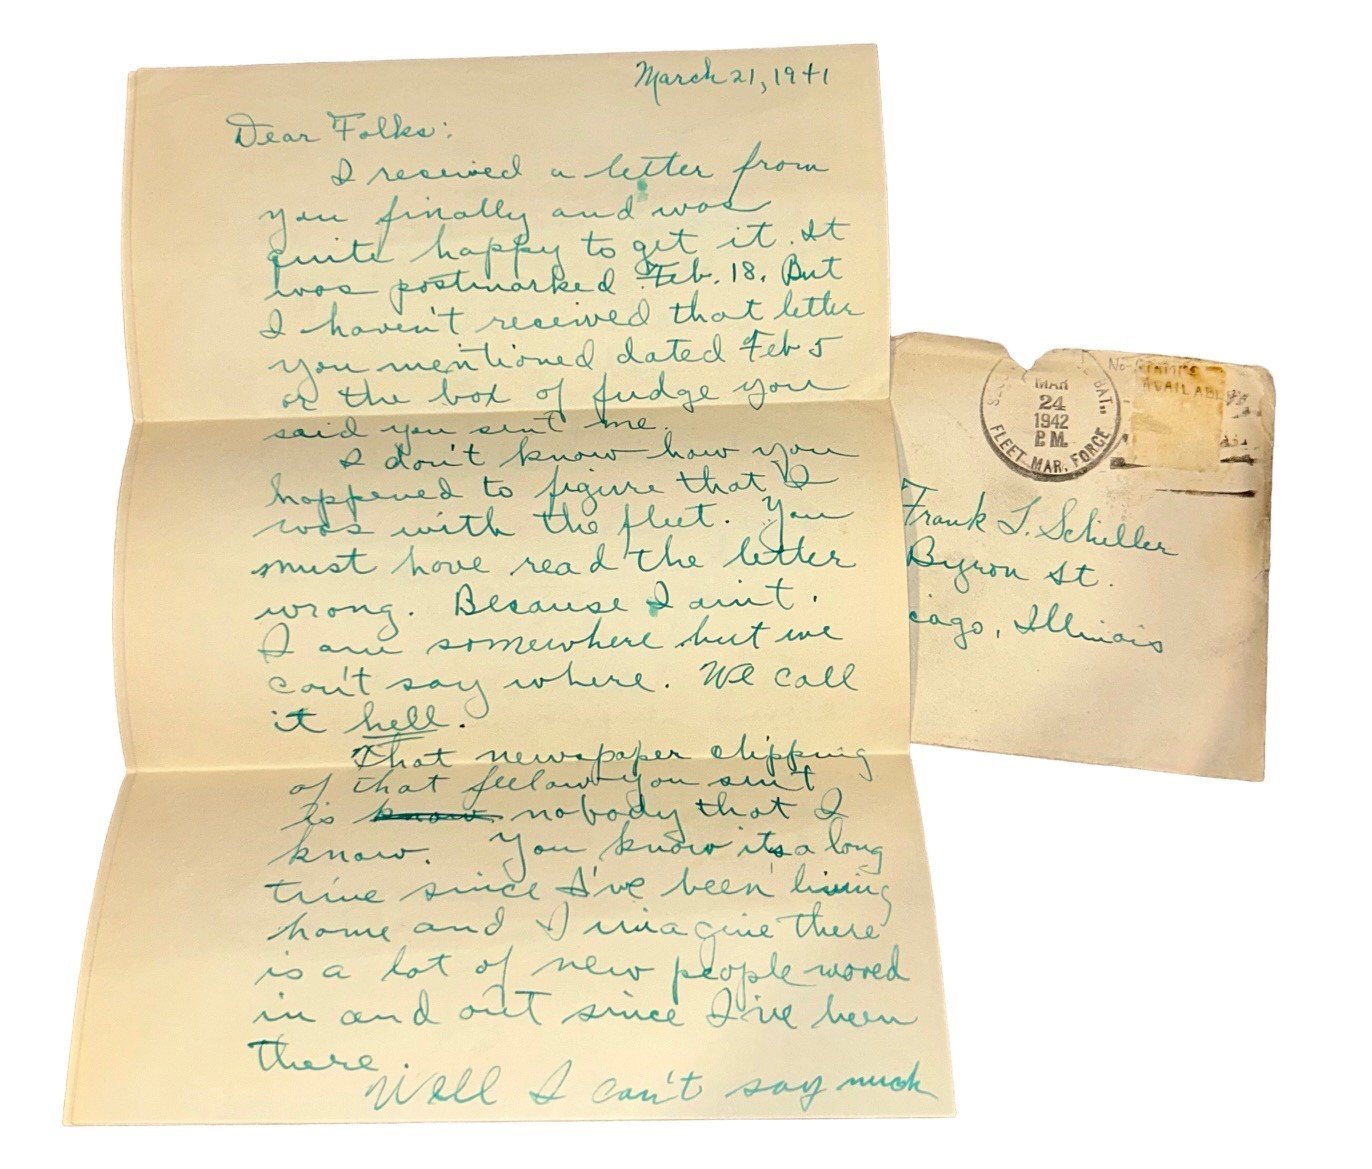 March 21, 1941
Dear Folks:
I received a letter from
you finally and was
quite happy to get it. It
was postmarked Feb. 18. But
I haven't received that letter
you mentioned dated Feb 5
or the box of fudge you
said you sent me.
I don't know how you
happened to figure that I
was with the fleet. You
must have read the letter
wrong. Because I ain't.
I am somewhere but we
can't say where. We call
it hell.
That newspaper clipping
of that fellow you sent
is know nobody that I
know. You know its a long
time since I've been living
home and I imagine there
is a lot of new people moved
in and out since I've been
there.
Well I can't say much
MAR
24
1942
P.M.
BAT.,
FLEET MAR. FORCE
No Stamps
AVAILABLE
Frank L. Schiller
Byron St.
cago, Illinois